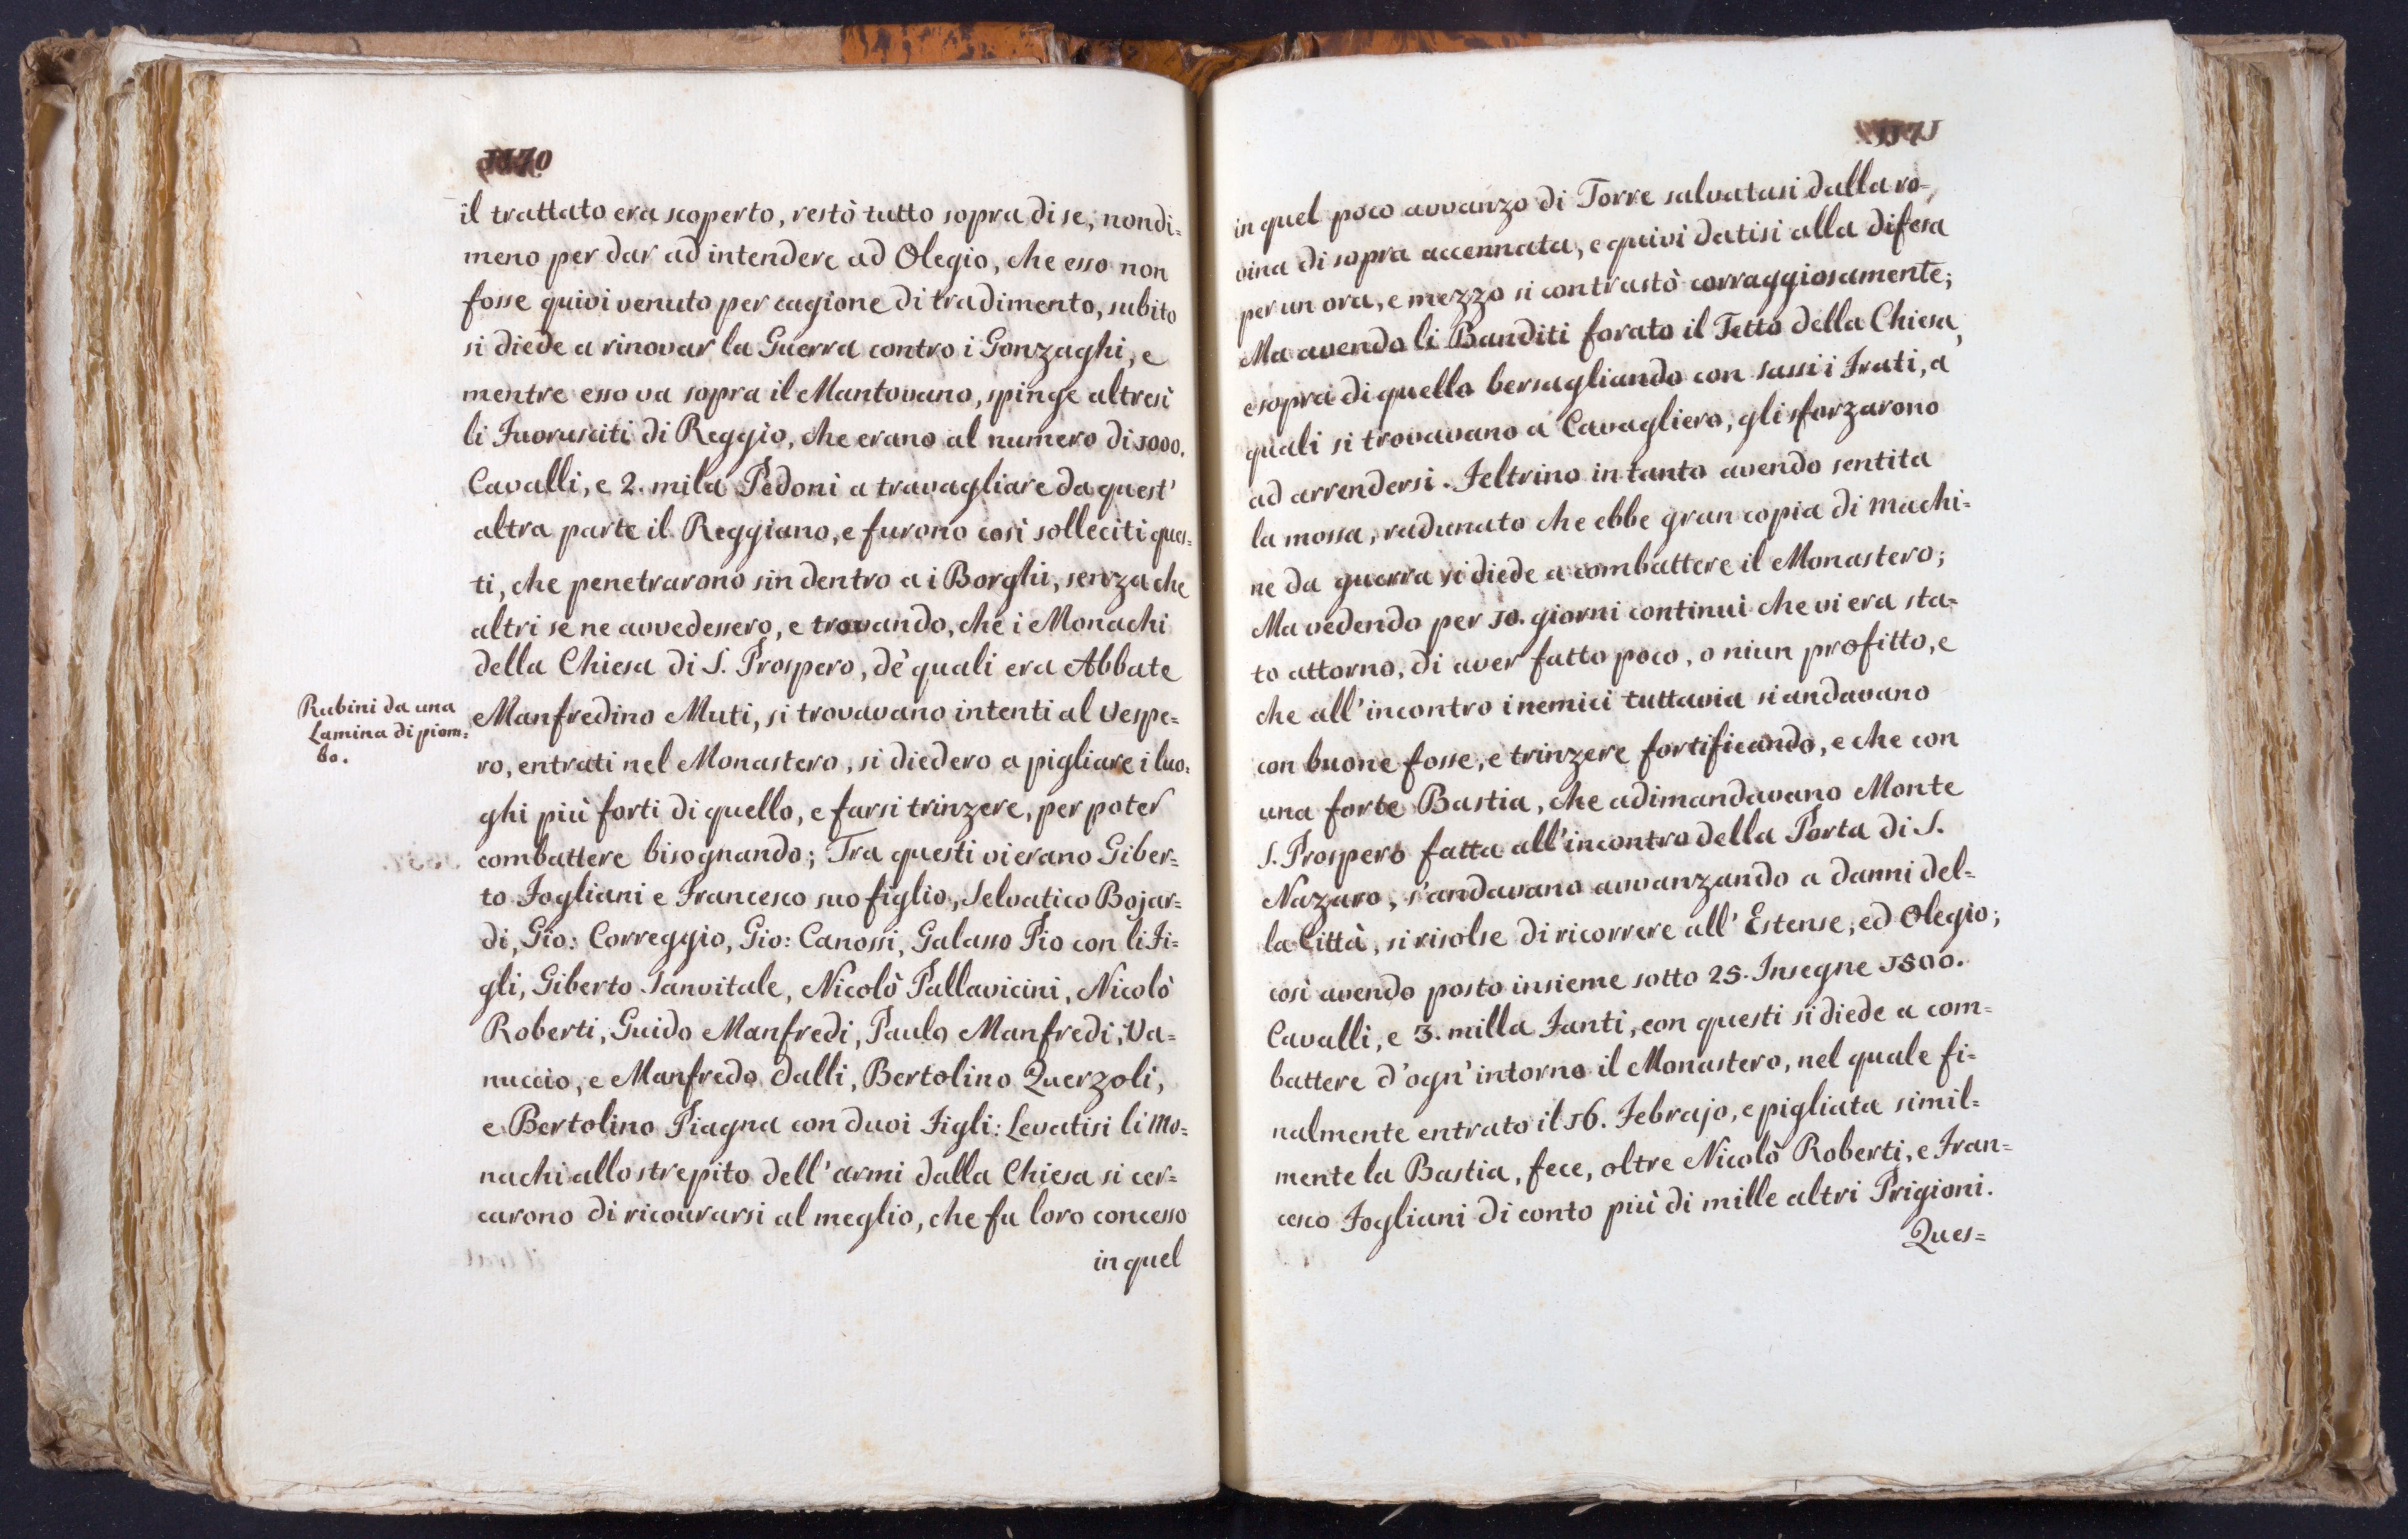 1170
il trattato era scoperto, restò tutto sopra di se; nondi=
meno per dar ad intendere ad Olegio, che esso non
fosse quivi venuto per cagione di tradimento, subito
si diede a rinovar la Guerra contro i Gonzaghi, e
mentre esso va sopra il Mantovano, spinge altresì
li Fuorusciti di Reggio, che erano al numero di 1000.
Cavalli, e 2. mila Pedoni a travagliare da quest'
altra parte il Reggiano, e furono così solleciti ques=
ti, che penetrarono sin dentro a i Borghi, senza che
altri se ne avvedessero, e trovando, che i Monachi
della Chiesa di S. Prospero, de' quali era Abbate
Rubini da una
Lamina di piom=
bo.
Manfredino Muti, si trovavano intenti al Vespe=
ro, entrati nel Monastero, si diedero a pigliare i luo=
ghi più forti di quello, e farsi trinzere, per poter
combattere bisognando; Tra questi vi erano Giber=
to Fogliani e Francesco suo figlio, Selvatico Bojar=
di, Gio: Correggio, Gio: Canossi, Galasso Pio con li Fi=
gli, Giberto Sanvitale, Nicolò Pallavicini, Nicolò
Roberti, Guido Manfredi, Paulo Manfredi, Va=
nuccio, e Manfredo dalli, Bertolino Querzoli,
e Bertolino Piagna con duoi Figli: Levatisi li Mo=
nachi allo strepito dell'armi dalla Chiesa si cer=
carono di ricourarsi al meglio, che fu loro concesso
in quel
1171
in quel poco avvanzo di Torre salvatasi dalla ro=
vina di sopra accennata, e quivi datisi alla difesa
per un ora, e mezzo si contrastò corraggiosamente;
Ma avendo li Banditi forato il Tetto della Chiesa,
e sopra di quello bersagliando con sassi i Frati, a'
quali si trovavano a Cavagliero, gli sforzarono
ad arrendersi. Feltrino in tanto avendo sentita
la mossa, radunato che ebbe gran copia di machi=
ne da guerra si diede a combattere il Monastero;
Ma vedendo per 10. giorni continui che vi era sta=
to attorno, di aver fatto poco, o niun profitto, e
che all'incontro i nemici tuttavia si andavano
con buone fosse, e trinzere fortificando, e che con
una forte Bastia, che adimandavano Monte
S. Prospero fatta all'incontro della Porta di S.
Nazaro, s'andavano avvanzando a danni del=
la Città, si risolse di ricorrere all'Estense, ed Olegio;
così avendo posto insieme sotto 25. Insegne 1500.
Cavalli, e 3. milla Fanti, con questi si diede a com=
battere d'ogn'intorno il Monastero, nel quale fi=
nalmente entrato il 16. Febrajo, e pigliata simil=
mente la Bastia, fece, oltre Nicolò Roberti, e Fran=
cesco Fogliani di conto più di mille altri Prigioni.
Ques=